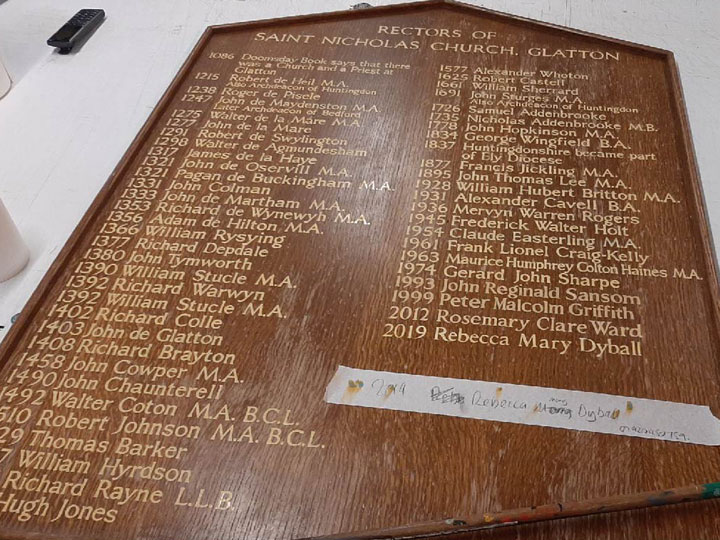 RECTORS OF
SAINT NICHOLAS CHURCH, GLATTON
1086 Doomsday Book says that there
was a Church and a Priest at
Glatton
1215 Robert de Heil M.A.
Also Archdeacon of Huntingdon
1238 Roger de Pisele
1247 John de Maydenston M.A.
Later Archdeacon of Bedford
1275 Walter de la Mare M.A.
1277 John de la Mare
1291 Robert de Swylington
1298 Walter de Agmundesham
1311 James de la Haye
1321 John de Oservill M.A.
1321 Pagan de Buckingham M.A.
1331 John Colman
1333 John de Martham M.A.
1353 Richard de Wynewyh M.A.
1356 Adam de Hilton M.A.
1366 William Rysying
1377 Richard Depdale
1380 John Tymworth
1390 William Stucle M.A.
1392 Richard Warwyn
1392 William Stucle M.A.
1402 Richard Colle
1403 John de Glatton
1408 Richard Brayton
1458 John Cowper M.A.
1490 John Chaunterell
1492 Walter Coton M.A. B.C.L.
510 Robert Johnson M.A. B.C.L.
29 Thomas Barker
7 William Hyrdson
Richard Rayne L.L.B.
Hugh Jones
1577 Alexander Whoton
1625 Robert Castell
1661 William Sherrard
1691 John Sturges M.A.
Also Archdeacon of Huntingdon
1726 Samuel Addenbrooke
1735 Nicholas Addenbrooke M.B.
1778 John Hopkinson M.A.
1834 George Wingfield B.A.
1837 Huntingdonshire became part
of Ely Diocese
1877 Francis Jickling M.A.
1895 John Thomas Lee M.A.
1928 William Hubert Britton M.A.
1931 Alexander Cavell B.A.
1936 Mervyn Warren Rogers
1945 Frederick Walter Holt
1954 Claude Easterling M.A.
1961 Frank Lionel Craig-Kelly
1963 Maurice Humphrey Colton Haines M.A.
1974 Gerard John Sharpe
1993 John Reginald Sansom
1999 Peter Malcolm Griffith
2012 Rosemary Clare Ward
2019 Rebecca Mary Dyball
2019 Rebecca Mary Dyball